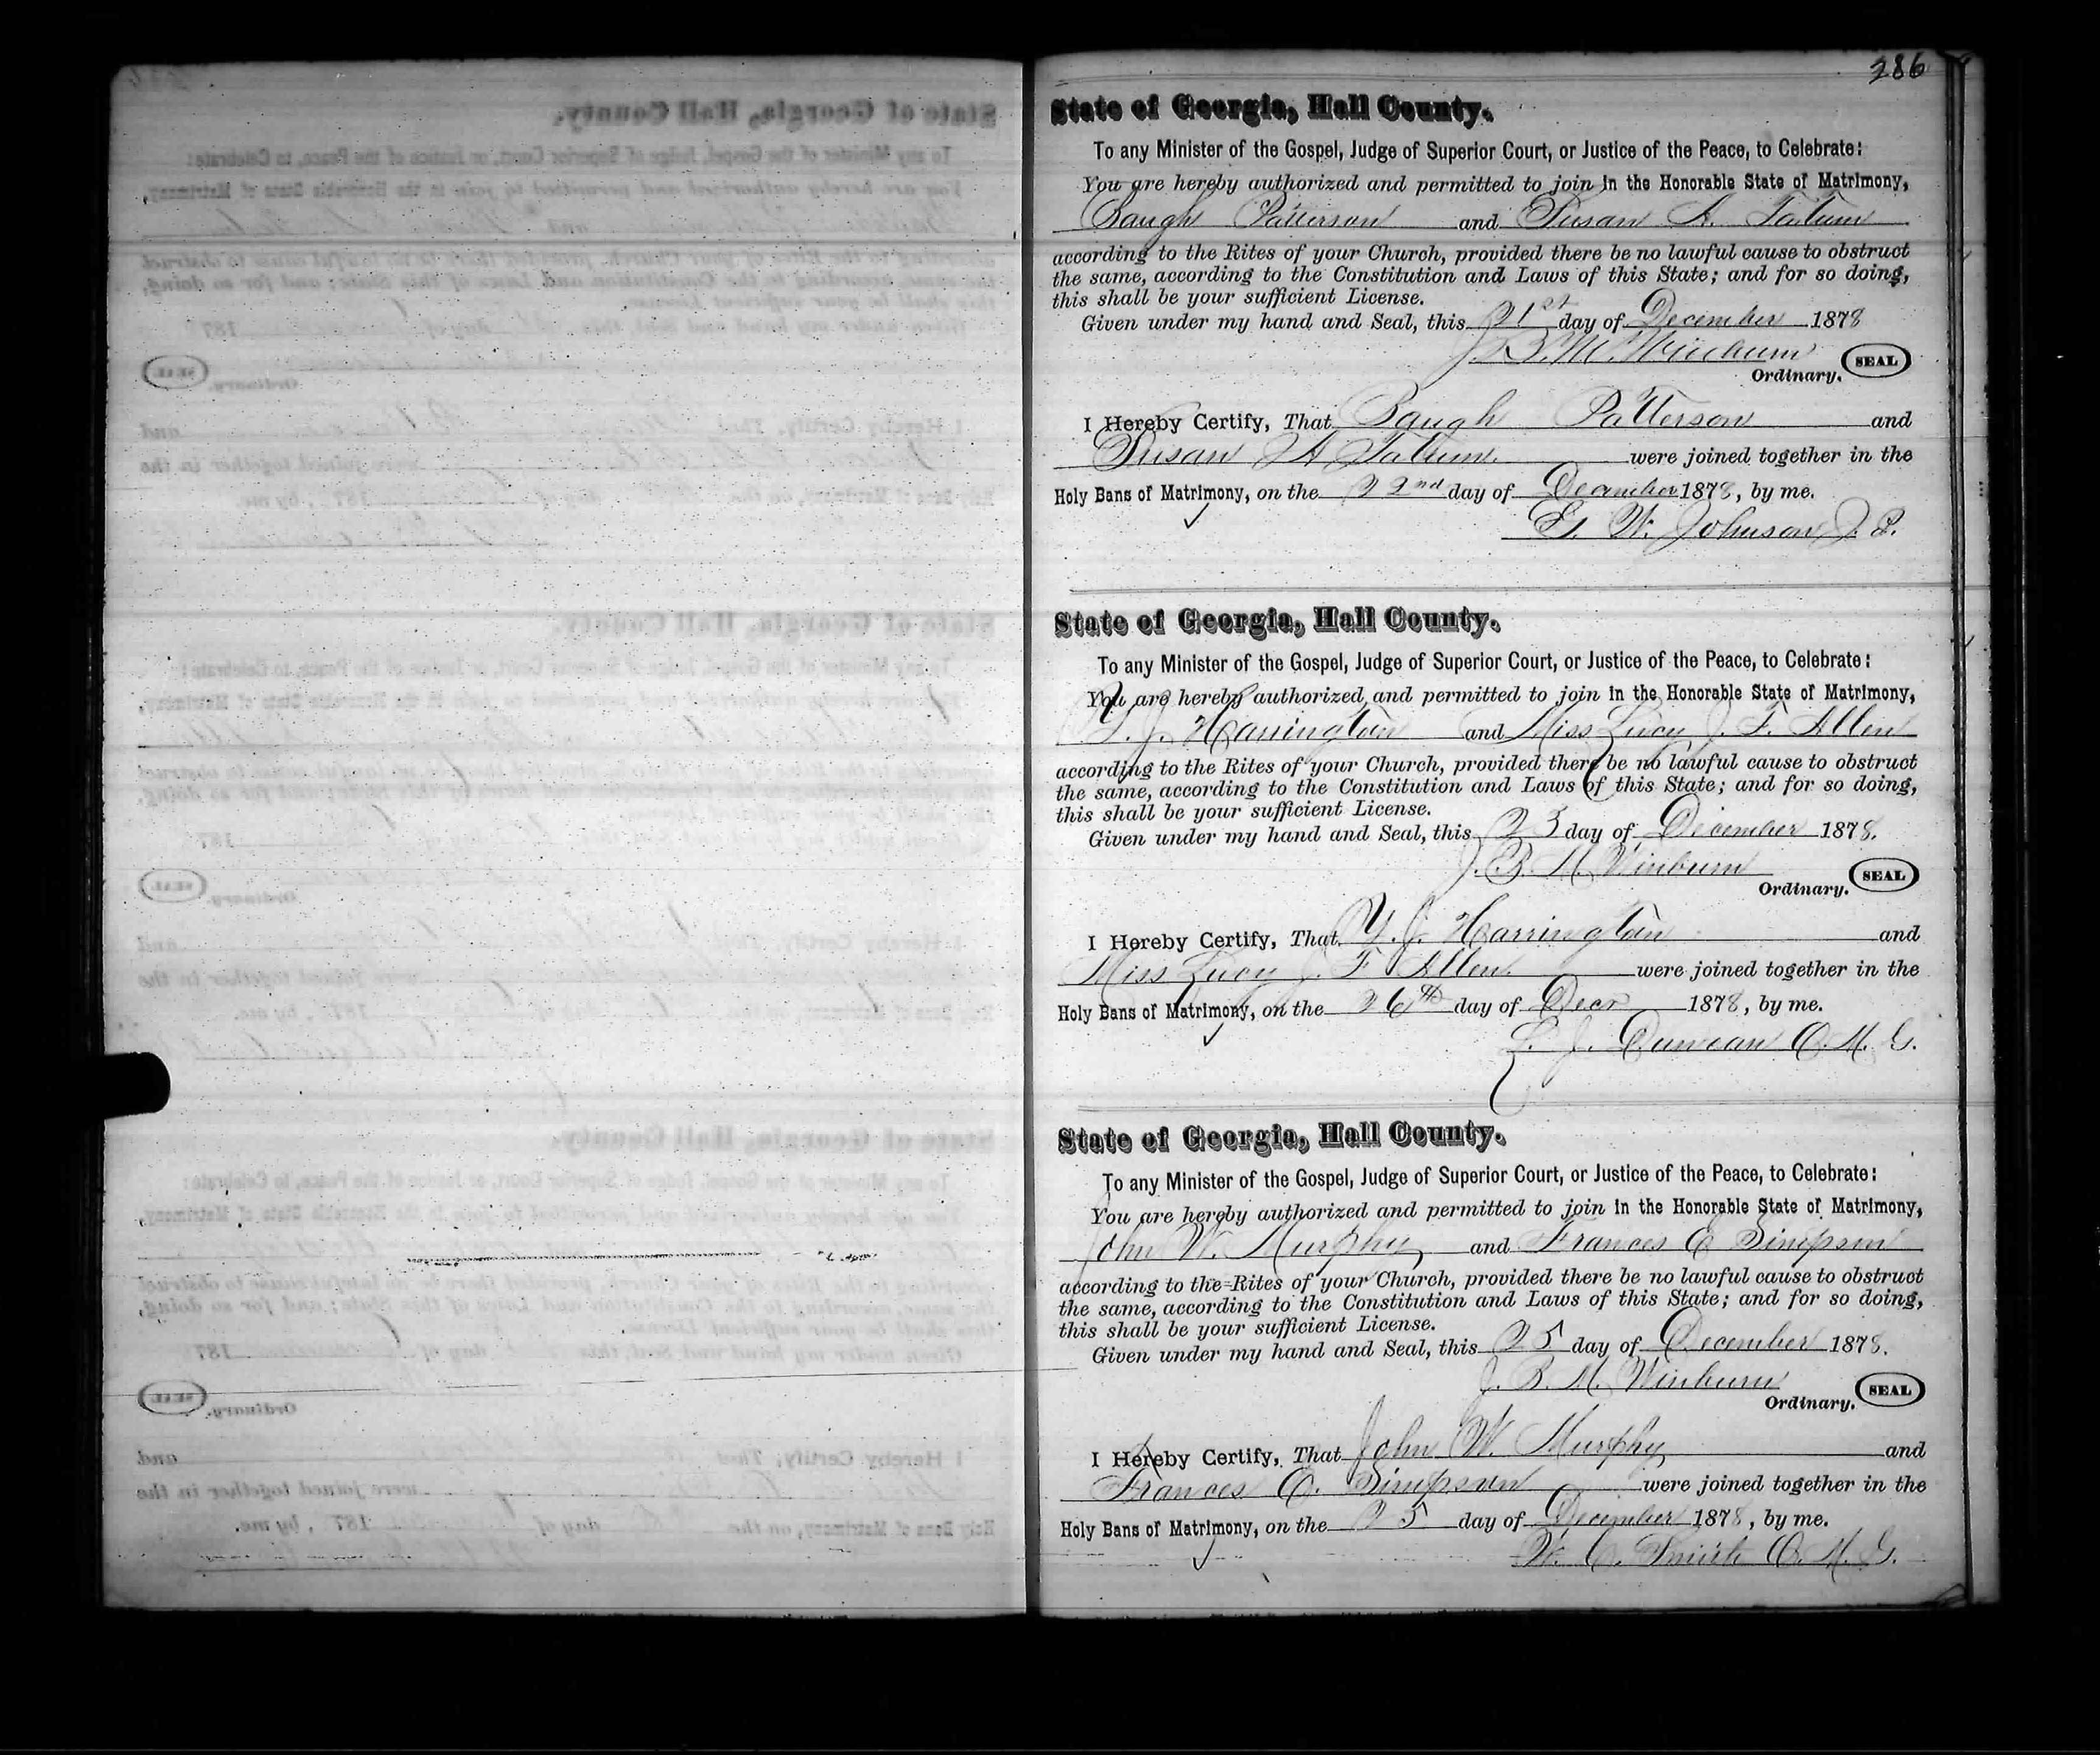 286
State of Georgia, Hall County.
To any Minister of the Gospel, Judge of Superior Court, or Justice of the Peace, to Celebrate:
You are hereby authorized and permitted to join in the Honorable State of Matrimony,
Baugh Patterson and Susan A. Tatum
according to the Rites of your Church, provided there be no lawful cause to obstruct
the same, according to the Constitution and Laws of this State; and for so doing,
this shall be your sufficient License.
Given under my hand and Seal, this 21st day of December 1878
J. B. M. Winburn SEAL
Ordinary.
I Hereby Certify, That Baugh Patterson and
Susan A Tatum. were joined together in the
Holy Bans of Matrimony, on the 22nd day of December 1878, by me.
G. W. Johnson J. P.
State of Georgia, Hall County.
To any Minister of the Gospel, Judge of Superior Court, or Justice of the Peace, to Celebrate:
You are hereby authorized and permitted to join in the Honorable State of Matrimony,
Y. J. Harrington and Miss Lucy J. F. Allen
according to the Rites of your Church, provided there be no lawful cause to obstruct
the same, according to the Constitution and Laws of this State; and for so doing,
this shall be your sufficient License.
Given under my hand and Seal, this 23 day of December 1878.
J. B. M. Winburn SEAL
Ordinary.
I Hereby Certify, That Y. J. Harrington and
Miss Lucy J. F Allen. were joined together in the
Holy Bans of Matrimony, on the 26th day of Decr 1878, by me.
L. J. Duncan O. M. G.
State of Georgia, Hall County.
To any Minister of the Gospel, Judge of Superior Court, or Justice of the Peace, to Celebrate:
You are hereby authorized and permitted to join in the Honorable State of Matrimony,
John W. Murphy and Frances C Simpson
according to the Rites of your Church, provided there be no lawful cause to obstruct
the same, according to the Constitution and Laws of this State; and for so doing,
this shall be your sufficient License.
Given under my hand and Seal, this 25 day of December 1878.
J. B. M. Winburn SEAL
Ordinary.
I Hereby Certify, That John W. Murphy and
Frances C. Simpson were joined together in the
Holy Bans of Matrimony, on the 25 day of December 1878, by me.
W. C. Smith O. M. G.